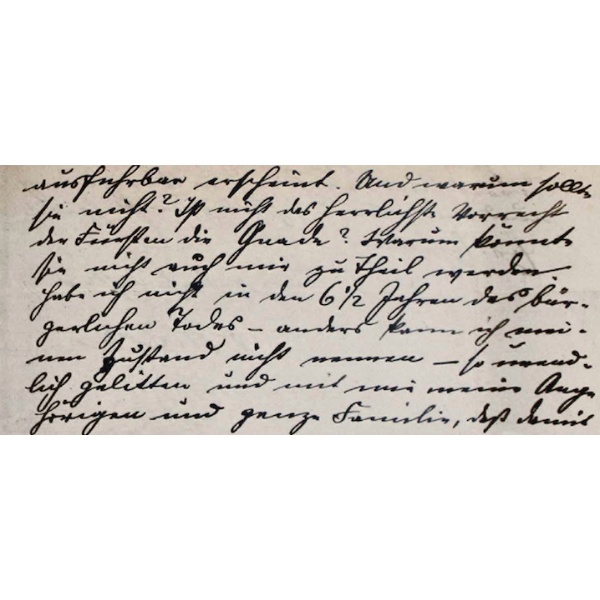 ausführbar erscheint. Und warum sollte
sie nicht? Ist nicht das herrlichste Vorrecht
der Fürsten die Gnade? Warum könnte
sie nicht auch mir zu Theil werden.
Habe ich nicht in den 6 1/2 Jahren des bür-
gerlichen Todes – anders kann ich mei-
nen Zustand nicht nennen – so unend-
lich gelitten und mit mir meine Ange
hörigen und ganze Familie, daß damit